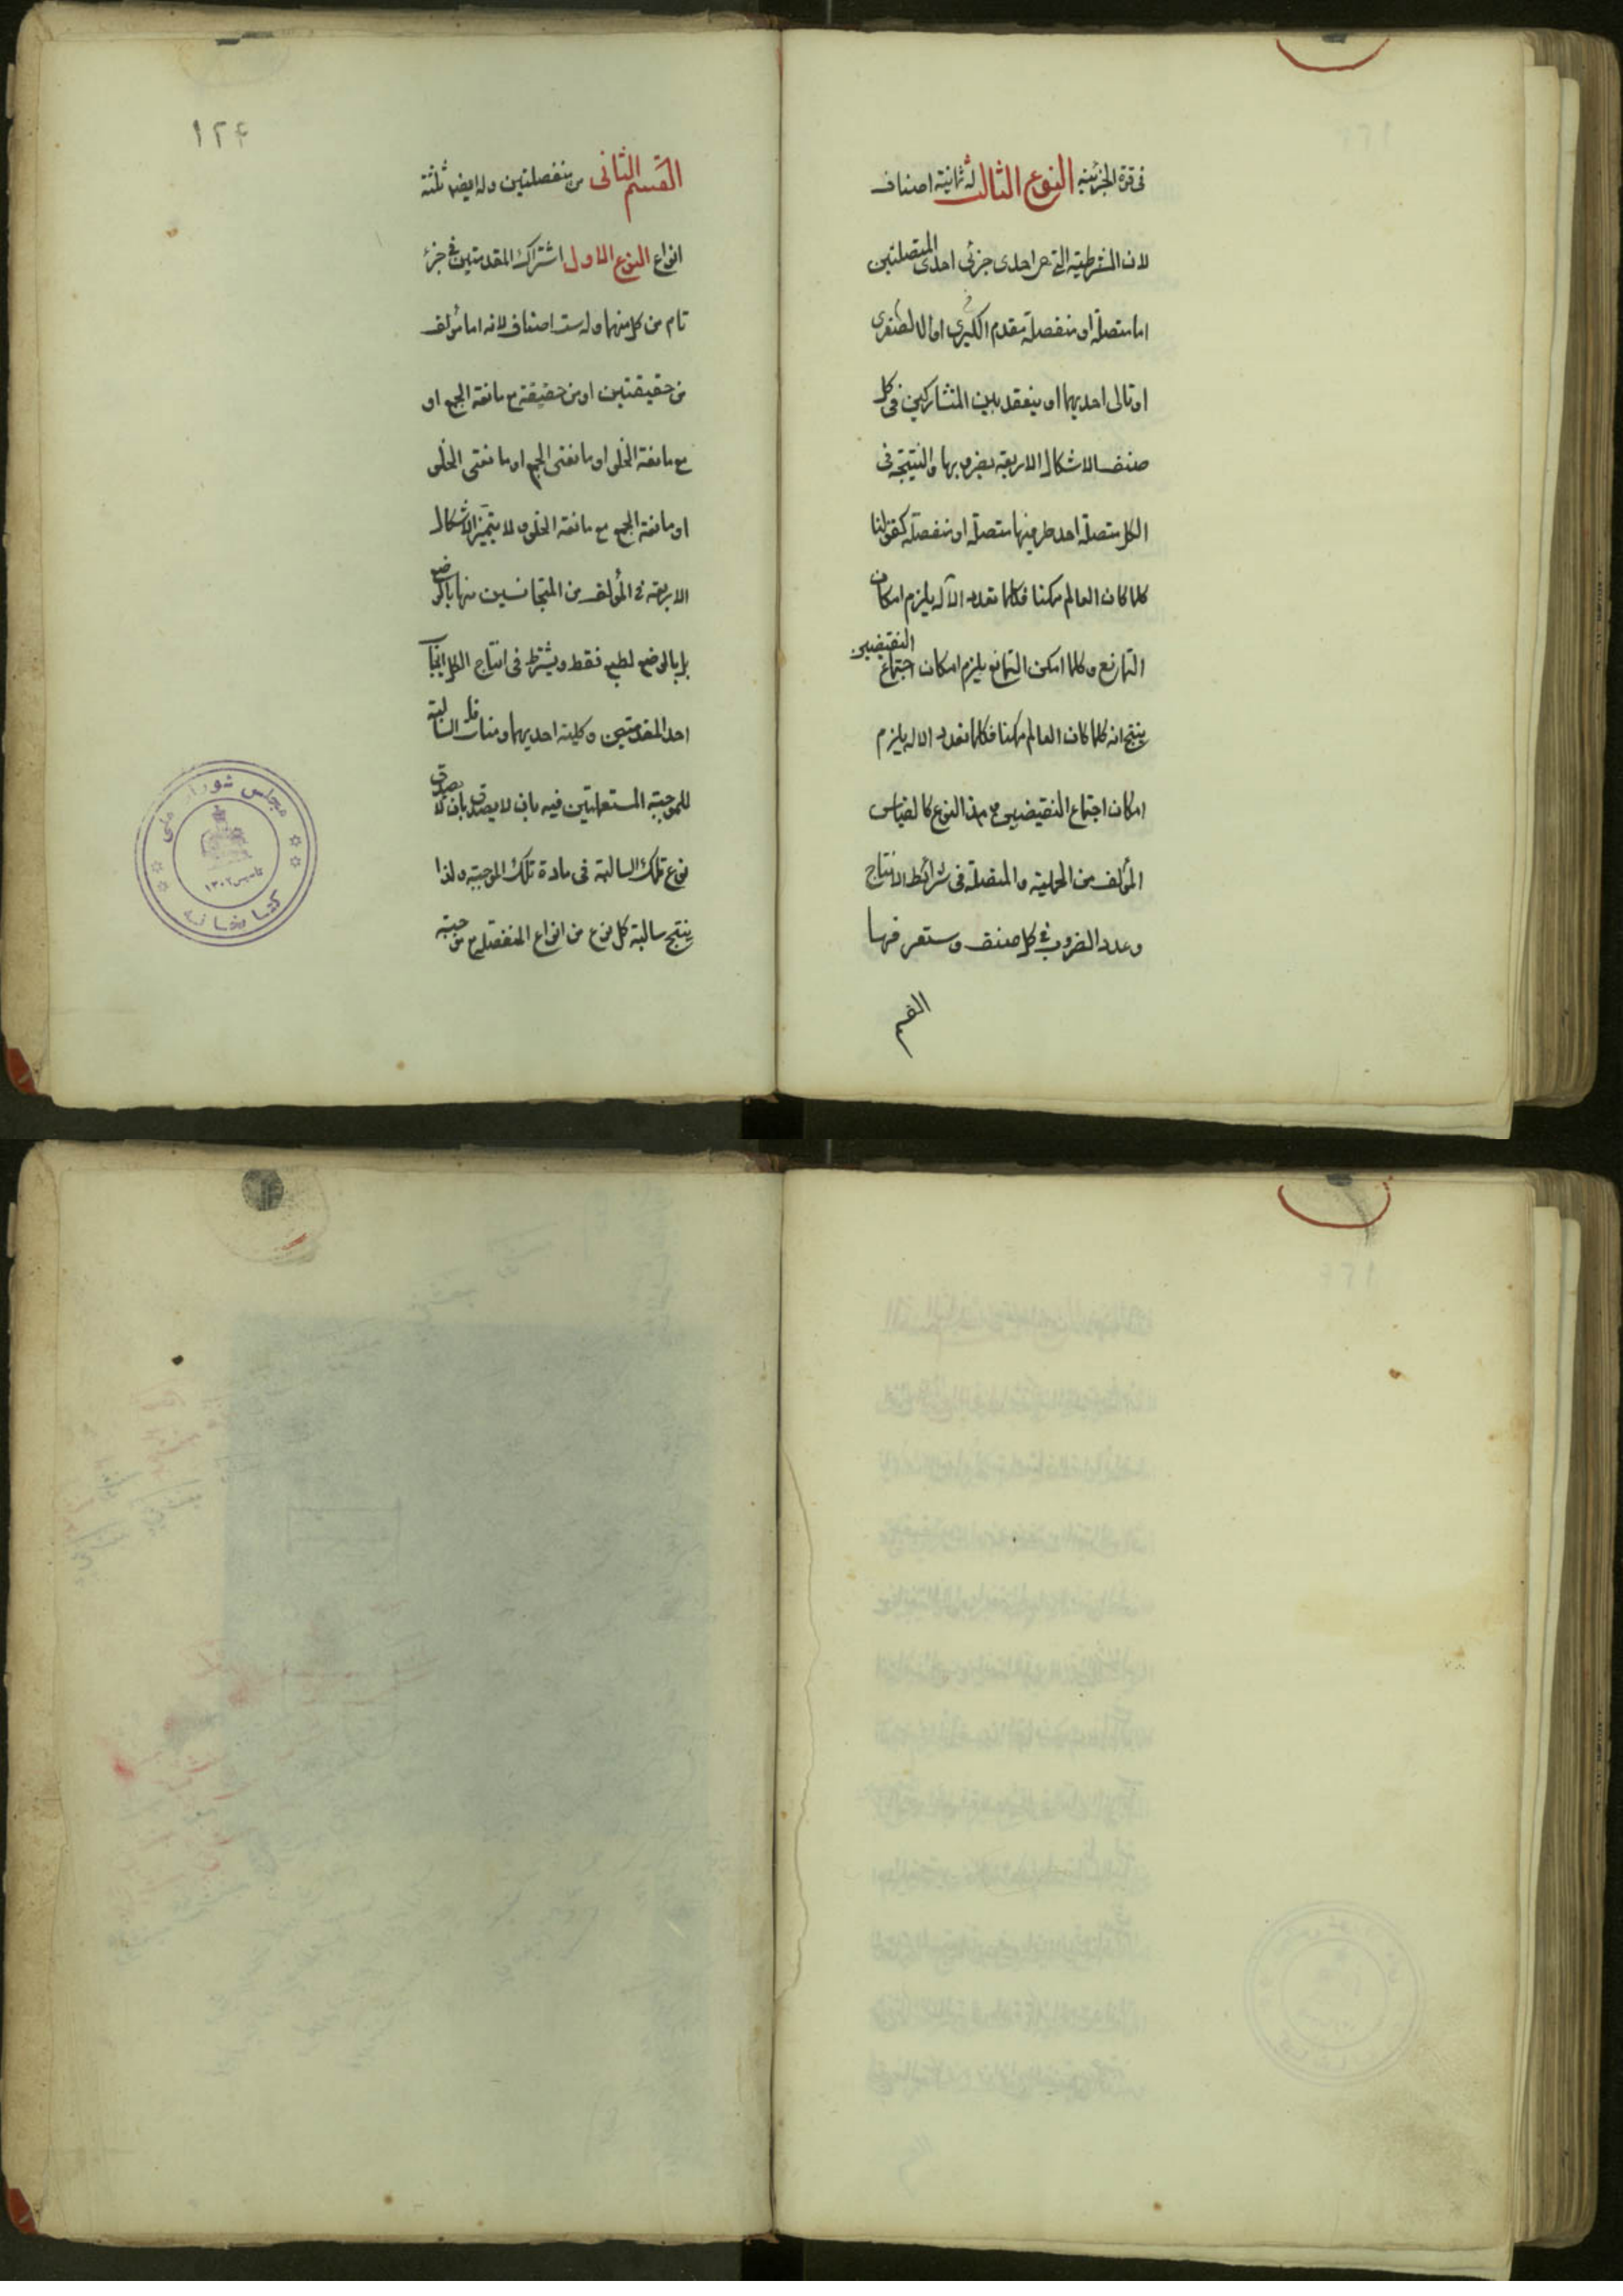 فى قوة الجزئية النوع الثالث له ثمانية اصناف
لان الشرطية التى هى احدى جزئى احدى المتصلتين
اما متصلة او منفصلة مقدم الكبرى او الصغرى
او تالى احديهما او ينعقد بين المتشاركين فى كل
صنف الاشكال الاربعة بضروبها والنتيجة فى
الكل متصلة احد طرفيها متصلة او منفصلة كقولنا
كلما كان العالم ممكنا فكلما تعدد الآله يلزم امكان
التمانع وكلما امكن التمانع يلزم امكان اجتماع النقيضين
ينتج انه كلما كان العالم ممكنا فكلما تعدد الاله يلزم
امكان اجتماع النقيضين و هذا النوع كالقياس
المؤلف من الحملية والمتصلة فى شرائط الانتاج
وعدد الضروب فى كل صنف وستعرفها
القسم
١٢۴
القسم الثانى من منفصلتين وله ايضا ثلثة
انواع النوع الاول اشتراك المقدمتين فى جزء
تام من كل منهما وله ست اصناف لانه اما مؤلف
من حقيقيتين او من حقيقية مع مانعة الجمع او
مع مانعة الخلو او مانعتى الجمع او مانعتى الخلو
او مانعة الجمع مع مانعة الخلو ولا يتميز الاشكال
الاربعة فى المؤلف من المتجانسين منها بالوضع
بل بالوضع لطبع فقط ويشترط فى انتاج الكل ايجاب
احد المقدمتين وكلية احديهما ومنافاة السالبة
للموجبة المستعملتين فيه بان لا يصدق بان لا يصدق
نوع تلك السالبة فى مادة تلك الموجبة ولذا
ينتج سالبة كل نوع من انواع المنفصلة مع موجبته
مجلس شورای ملی
تاسیس ۱۳۰۲
کتابخانه